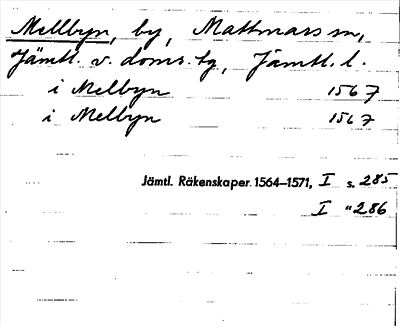 Mellbyn, by, Mattmars sn,
Jämtl. v. doms. tg, Jämtl. l.
i Melbyn 1567
i Melbyn 1567
Jämtl. Räkenskaper 1564–1571, I s. 285
I " 286